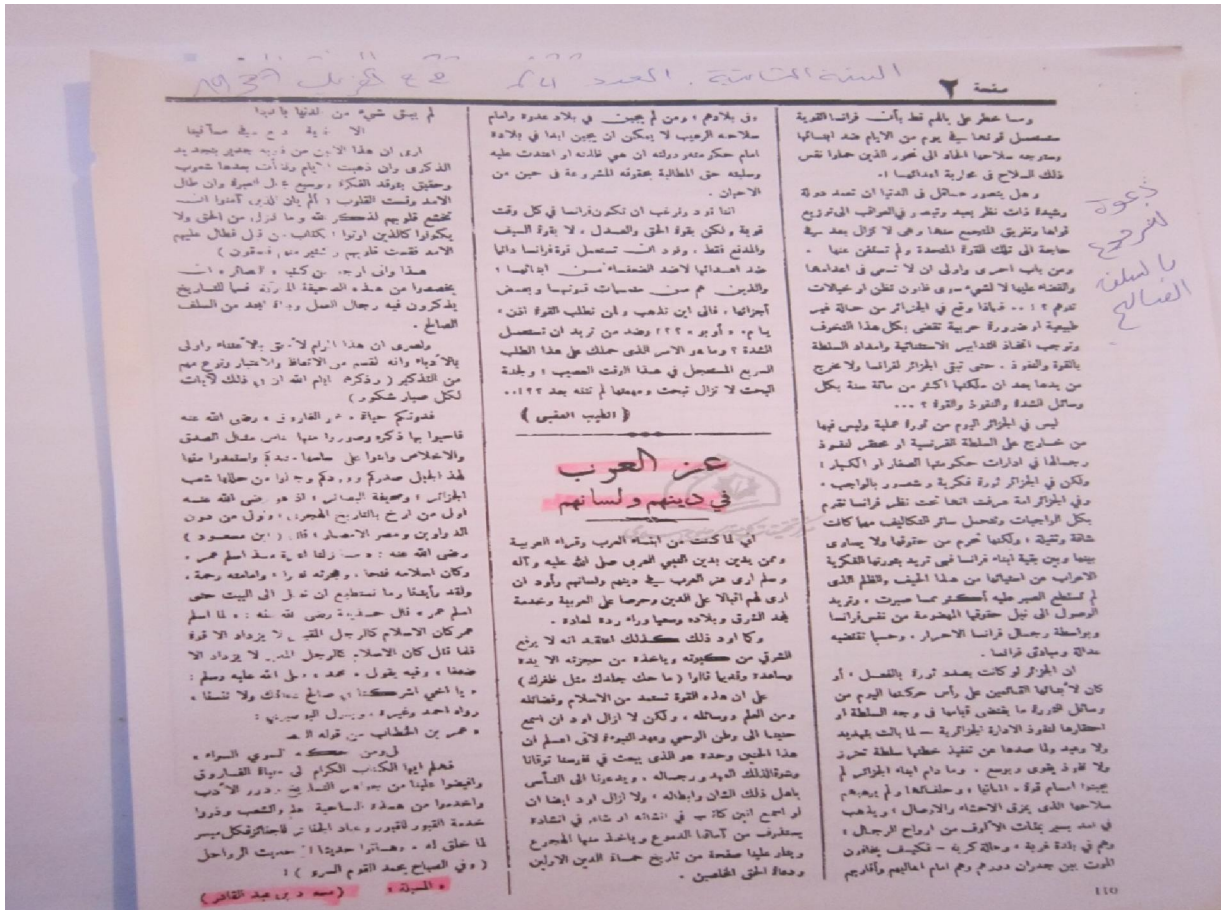 صفحة ٢
السنة الثانية . العدد
دعوة
للرجوع
بالسلف
الصالح
وما خطر على بالهم قط بأن فرانسا القوية
ستستعمل قوتها في يوم من الايام ضد ابنائها
وستوجه سلاحها الحاد الى نحور الذين حملوا نفس
ذلك السلاح في محاربة اعدائها !.
وهل يتصور عاقل في الدنيا ان تعمد دولة
رشيدة ذات نظر بعيد وتبصر في العواقب الى توزيع
قواها وتفريق المتجمع منها وهى لا تزال بعد في
حاجة الى تلك القوة المتحدة ولم تستغن عنها .
ومن باب احرى واولى ان لا تسعى في اعدامها
والقضاء عليها لا لشيء سوى ظنون تظن او خيالات
تتوهم ؟ ! .. فماذا وقع في الجزائر من حالة غير
طبيعية او ضرورة حربية تقضى بكل هذا التخوف
وتوجب اتخاذ التدابير الاستثنائية وامداد السلطة
بالقوة والنفوذ . حتى تبقى الجزائر لفرانسا ولا تخرج
من يدها بعد ان ملكتها اكثر من مائة سنة بكل
وسائل الشدة والنفوذ والقوة ؟ ...
ليس في الجزائر اليوم من ثورة عملية وليس فيها
من خارج على السلطة الفرنسية او محتقر لنفوذ
رجالها في ادارات حكومتها الصغار او الكبار !
ولكن في الجزائر ثورة فكرية و شعور بالواجب .
وفي الجزائر امة عرفت انها تحت نظر فرانسا تقوم
بكل الواجبات وتتحمل سائر التكاليف مهما كانت
شاقة وثقيلة ، ولكنها تحرم من حقوقها ولا يساوى
بينها وبين بقية ابناء فرانسا فهى تريد بثورتها الفكرية
الاعراب عن استيائها من هذا الحيف والظلم الذى
لم تستطع الصبر عليه أكثر مما صبرت ، وتريد
الوصول الى نيل حقوقها المهضومة من نفس فرانسا
وبواسطة رجال فرانسا الاحرار . وحسبما تقتضيه
عدالة ومبادئ فرانسا .
ان الجزائر لو كانت بصدد ثورة بالفعل ، أو
كان لأبنائها القائمين على رأس حركتها اليوم من
وسائل الثورة ما يقتضى قيامها فى وجه السلطة او
احتقارها لنفوذ الادارة الجزائرية — لما بالت بتهديد
ولا وعيد ولما صدها عن تنفيذ خطتها سلطة تعزز
ولا نفوذ يقوى ويوسع . وما دام ابناء الجزائر لم
يجبنوا امام قوة . المانيا ، وحلفائها ولم يرهبهم
سلاحها الذى يمزق الاحشاء والاوصال ، ويذهب
في امد يسير بمئات الألوف من ارواح الرجال ،
وهم في بلاد غربة ، وحالة كربة ، فكيف يخافون
الموت بين جدران دورهم وهم امام اهاليهم وأقاربهم
وفى بلادهم ، ومن لم يجبن في بلاد عدوه وامام
سلاحه الرهيب لا يمكن ان يجبن ابدا في بلاده
امام حكومته ودولته ان هي ظلمته او اعتدت عليه
وسلبته حق المطالبة بحقوقه المشروعة في حين من
الاحيان .
اننا نود ونرغب ان تكون فرانسا في كل وقت
قوية ولكن بقوة الحق والعدل ، لا بقوة السيف
والمدفع فقط . ونود ان تستعمل قوة فرانسا دائما
ضد اعدائها لا ضد الضعفاء من ابنائها ،
والذين هم من متممات قوتها وبعض
أجزائها . فالى اين نذهب و ان نطلب القوة اذن ،
يا م. « أوبو » ؟؟! وضد من تريد ان تستعمل
الشدة ؟ وما هو الامر الذى حملك على هذا الطلب
السريع المستعجل في هذا الوقت العصيب ، ولجنة
البحث لا تزال تبحث ومهمتها لم تنته بعد ؟؟!..
( الطيب العقبي )
عز العرب
في دينهم ولسانهم
انى لما كنت من ابناء العرب وقراء العربية
وممن يدين بدين النبي العربى صلى الله عليه وآله
وسلم ارى عز العرب في دينهم ولسانهم وأود ان
ارى لهم اقبالا على الدين وحرصا على العربية وخدمة
لمجد الشرق وبلاده وسعيا وراء رده لعاده .
وكما اود ذلك كذلك اعتقد انه لا يرفع
الشرقي من كبوته ويأخذه من حجزته الا يده
وساعده وقديما قالوا ( ما حك جلدك مثل ظفرك )
على ان هذه القوة تستمد من الاسلام وفضائله
ومن العلم ووسائله . ولكن لا ازال اود ان اسمع
حنينا الى وطن الوحي ومهد النبوءة لانى اعلم ان
هذا الحنين وحده هو الذى يبعث في نفوسنا توقانا
وشوقا لذلك العهد ورجاله . ويدعونا الى التأسى
باهل ذلك الشان وابطاله ، ولا ازال اود ايضا ان
لو اسمع انين كاتب في انشائه او شاعر في انشاده
يستذرف من آماقنا الدموع ويأخذ منها الهجوع
وينثر علينا صفحة من تاريخ حماة الدين الاولين
ودعاة الحق المخلصين .
لم يبق شيء من الدنيا بأيدينا
ارى ان هذا الانين من قومه جدير بتجديد
الذكرى وان ذهبت ايام ونشأت بعدها شعوب
الامد وقست القلوب ( ألم يان للذين آمنوا ان
تخشع قلوبهم لذكر الله وما نزل من الحق ولا
يكونوا كالذين اوتوا الكتاب من قبل فطال عليهم
الامد فقست قلوبهم وكثير منهم فاسقون )
هذا وانى ارجو من كتبة « البصائر » ان
يخصصوا من هذه الصحيفة الغراء قسما للتاريخ
يذكرون فيه رجال العمل وبناة المجد من السلف
الصالح .
من التذكير ( وذكرهم بأيام الله ان في ذلك لآيات
لكل صبار شكور )
فدونكم حياة « عمر الفاروق » رضى الله عنه
الجزائر ، وصحيفة البصائر ، اذ هو رضى الله عنه
اول من ارخ بالتاريخ الهجري ، واول من دون
الدواوين ومصر الامصار ، قال ( ابن مسعود )
رضى الله عنه : « ما زلنا اعزة منذ اسلم عمر .
وكان اسلامه فتحا . وهجرته نصرا ، وامامته رحمة .
ولقد رأيتنا وما نستطيع ان نصلى الى البيت حتى
اسلم عمر » قال حذيفة رضى الله عنه : « لما اسلم
عمر كان الاسلام كالرجل المقبل لا يزداد الا قوة
فلما قتل كان الاسلام كالرجل المدبر لا يزداد الا
ضعفا » وفيه يقول « محمد » صلى الله عليه وسلم :
« يا اخي اشركنا في صالح دعائك ولا تنسنا »
رواه احمد وغيره . ويقول البوصيري :
« عمر بن الخطاب من قوله الفصـ
ـل ومن حكمه السوي السواء »
فهلم ايها الكتاب الكرام الى حياة الفاروق
وافيضوا علينا من جواهر التاريخ . ودرر الأدب
لما خلق له . وهاتوا حديثا
( وفي الصباح يحمد القوم السرى ) :
« المسيلة » ( مسعود بن عبد القادر )